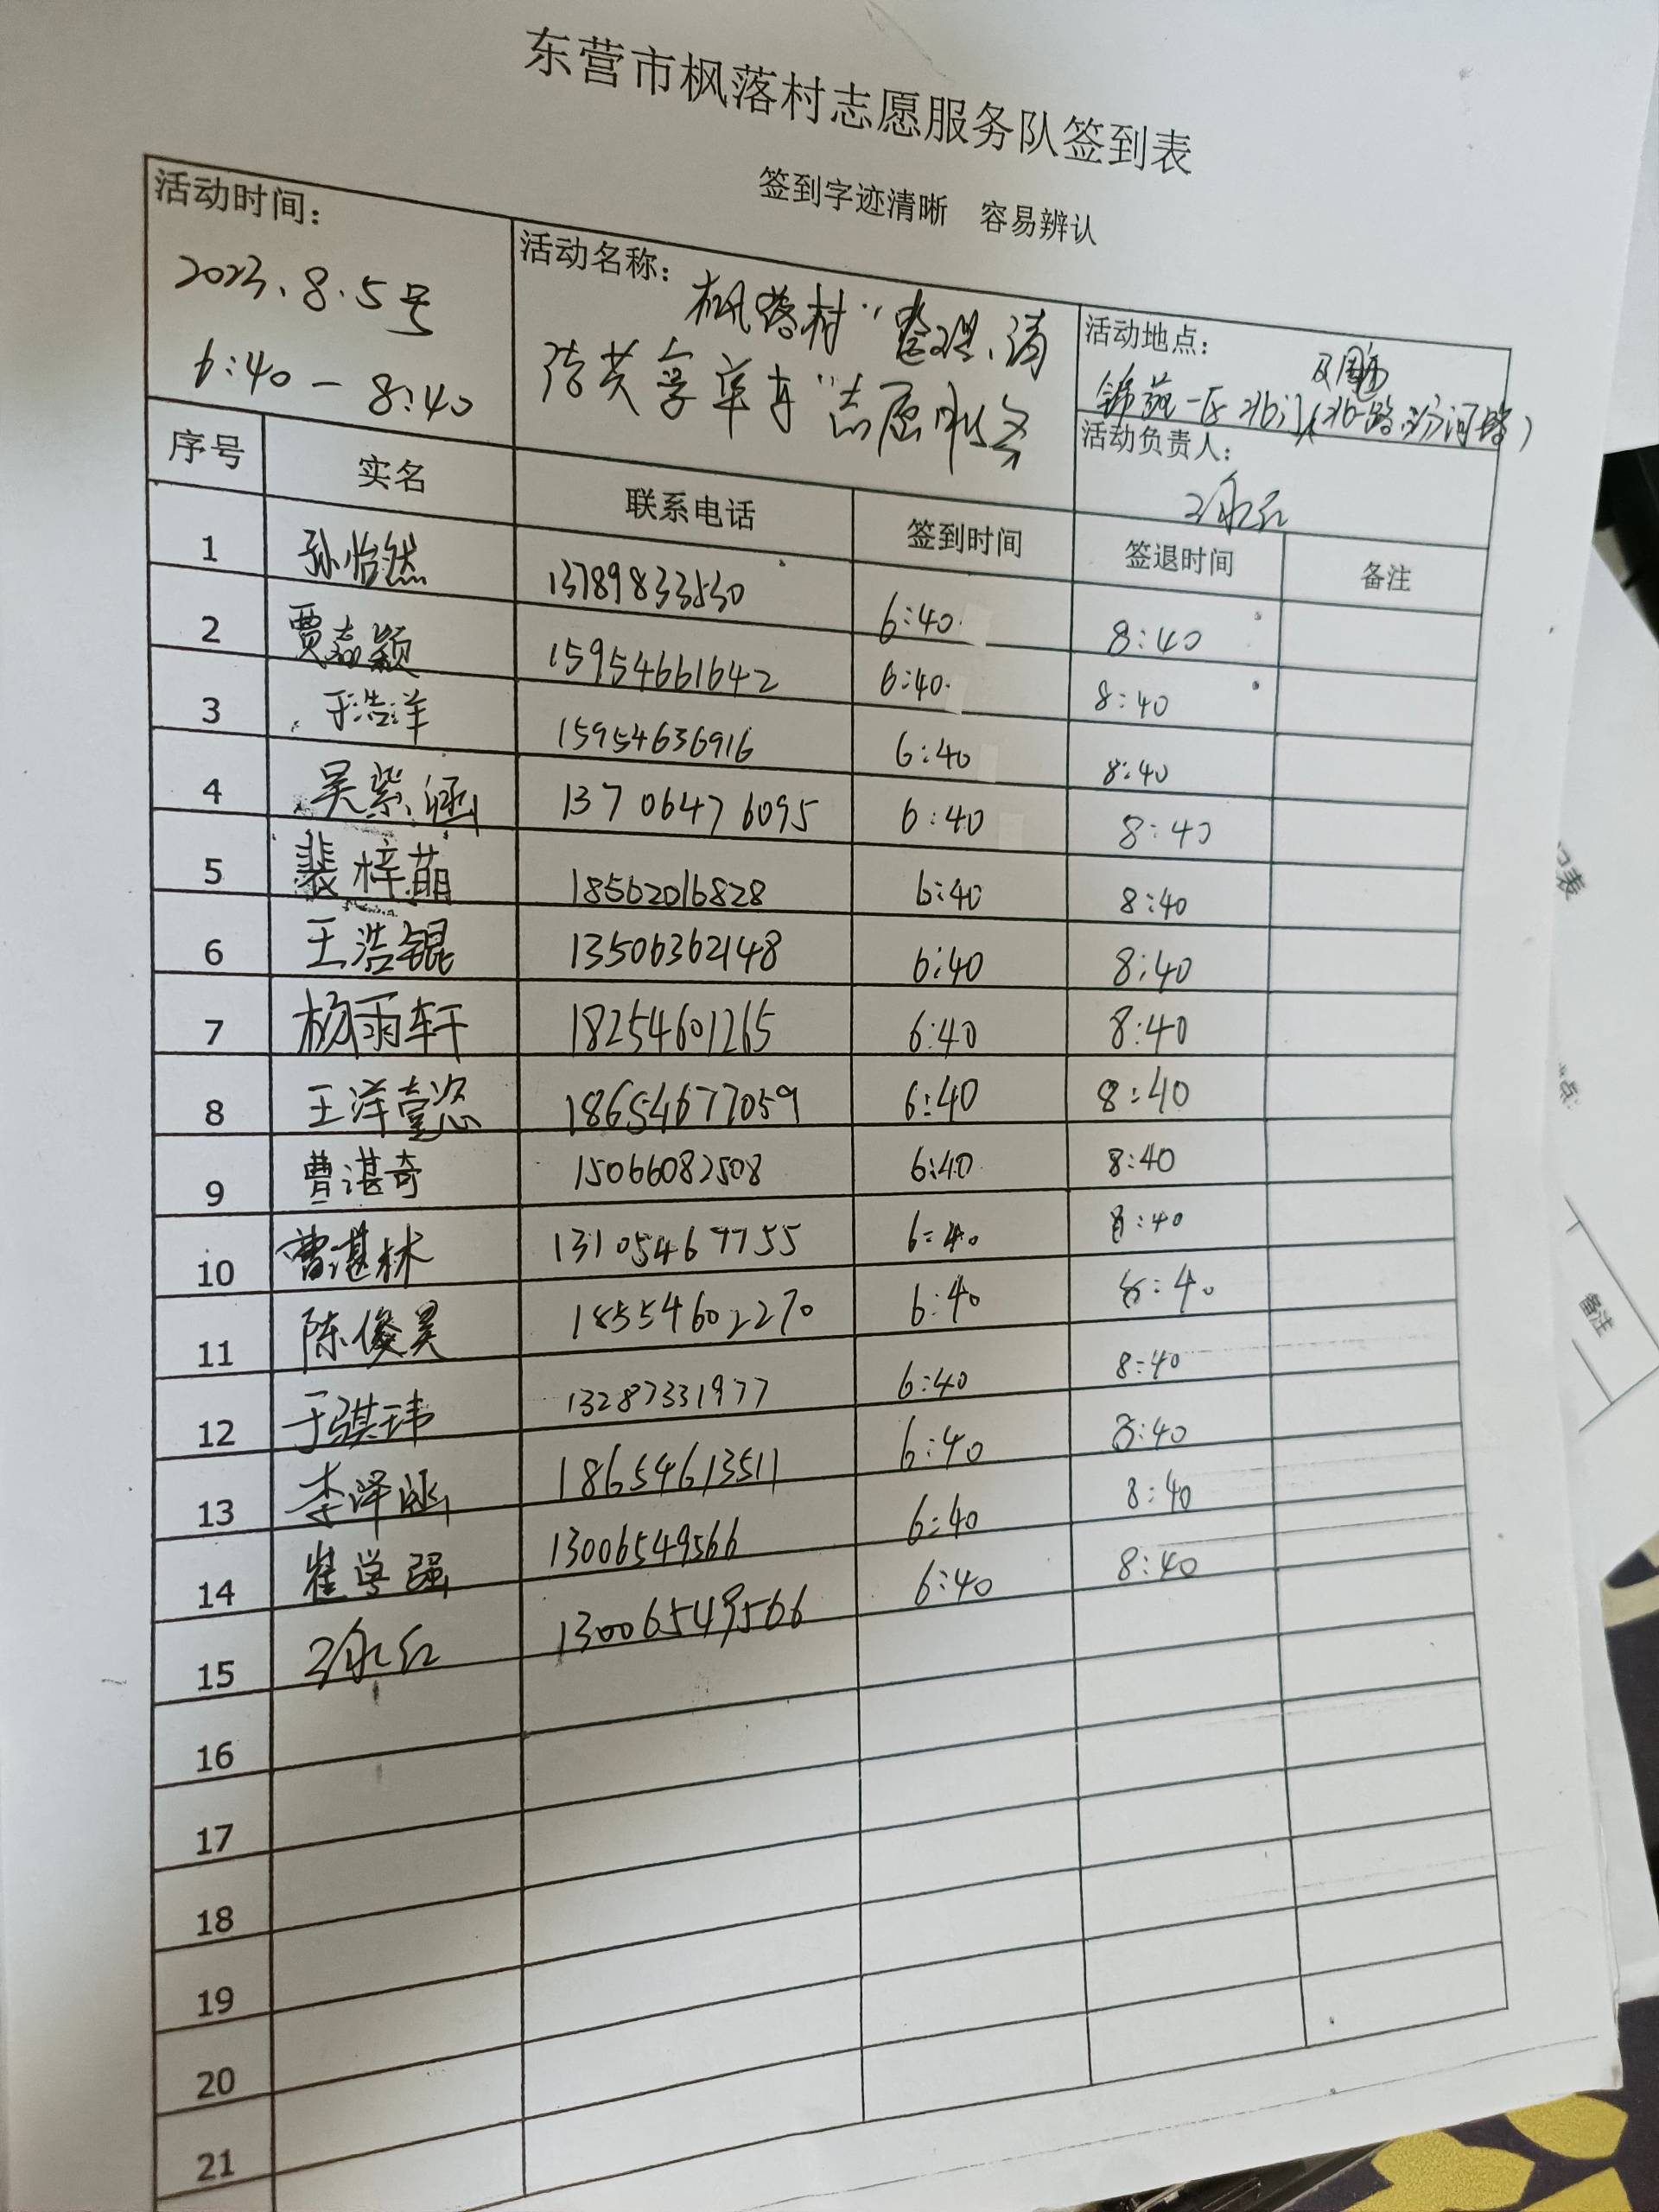 东营市枫落村志愿服务队签到表
签到字迹清晰 容易辨认
活动时间：
2023.8.5号
6:40-8:40
活动名称：
枫落村“整理、清
洁共享单车”志愿服务
活动地点：
及周边
锦苑一区北门(北一路、汾河路)
活动负责人：
永红
序号 实名 联系电话 签到时间 签退时间 备注
1 孙怡然 13789833530 6:40 8:40
2 贾嘉颖 15954661642 6:40 8:40
3 于浩洋 15954636916 6:40 8:40
4 吴紫涵 13706476095 6:40 8:40
5 裴梓萌 18562016828 6:40 8:40
6 王浩锟 13506362148 6:40 8:40
7 杨雨轩 18254601265 6:40 8:40
8 王洋壹恣 18654677059 6:40 8:40
9 曹湛奇 15066082508 6:40 8:40
10 曹湛林 13105467755 6:40 8:40
11 陈俊昊 18554602270 6:40 8:40
12 于骐玮 13287331977 6:40 8:40
13 李泽涵 18654613511 6:40 8:40
14 崔学强 13006549566 6:40 8:40
15 永红 13006549566 6:40 8:40
16
17
18
19
20
21
表
备注